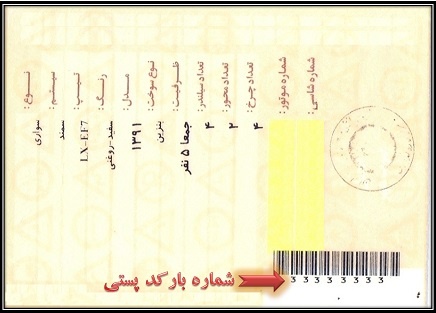 نوع : سواری
سیستم : سمند
تیپ : LX-EF7
رنگ : سفید-روغنی
مدل : ۱۳۹۱
نوع سوخت : بنزین
ظرفیت : جمعا ۵ نفر
تعداد سیلندر : ۴
تعداد محور : ۲
تعداد چرخ : ۴
شماره موتور :
شماره شاسی :
شماره بار کد پستی
3 3 3 3 3 3 3 3